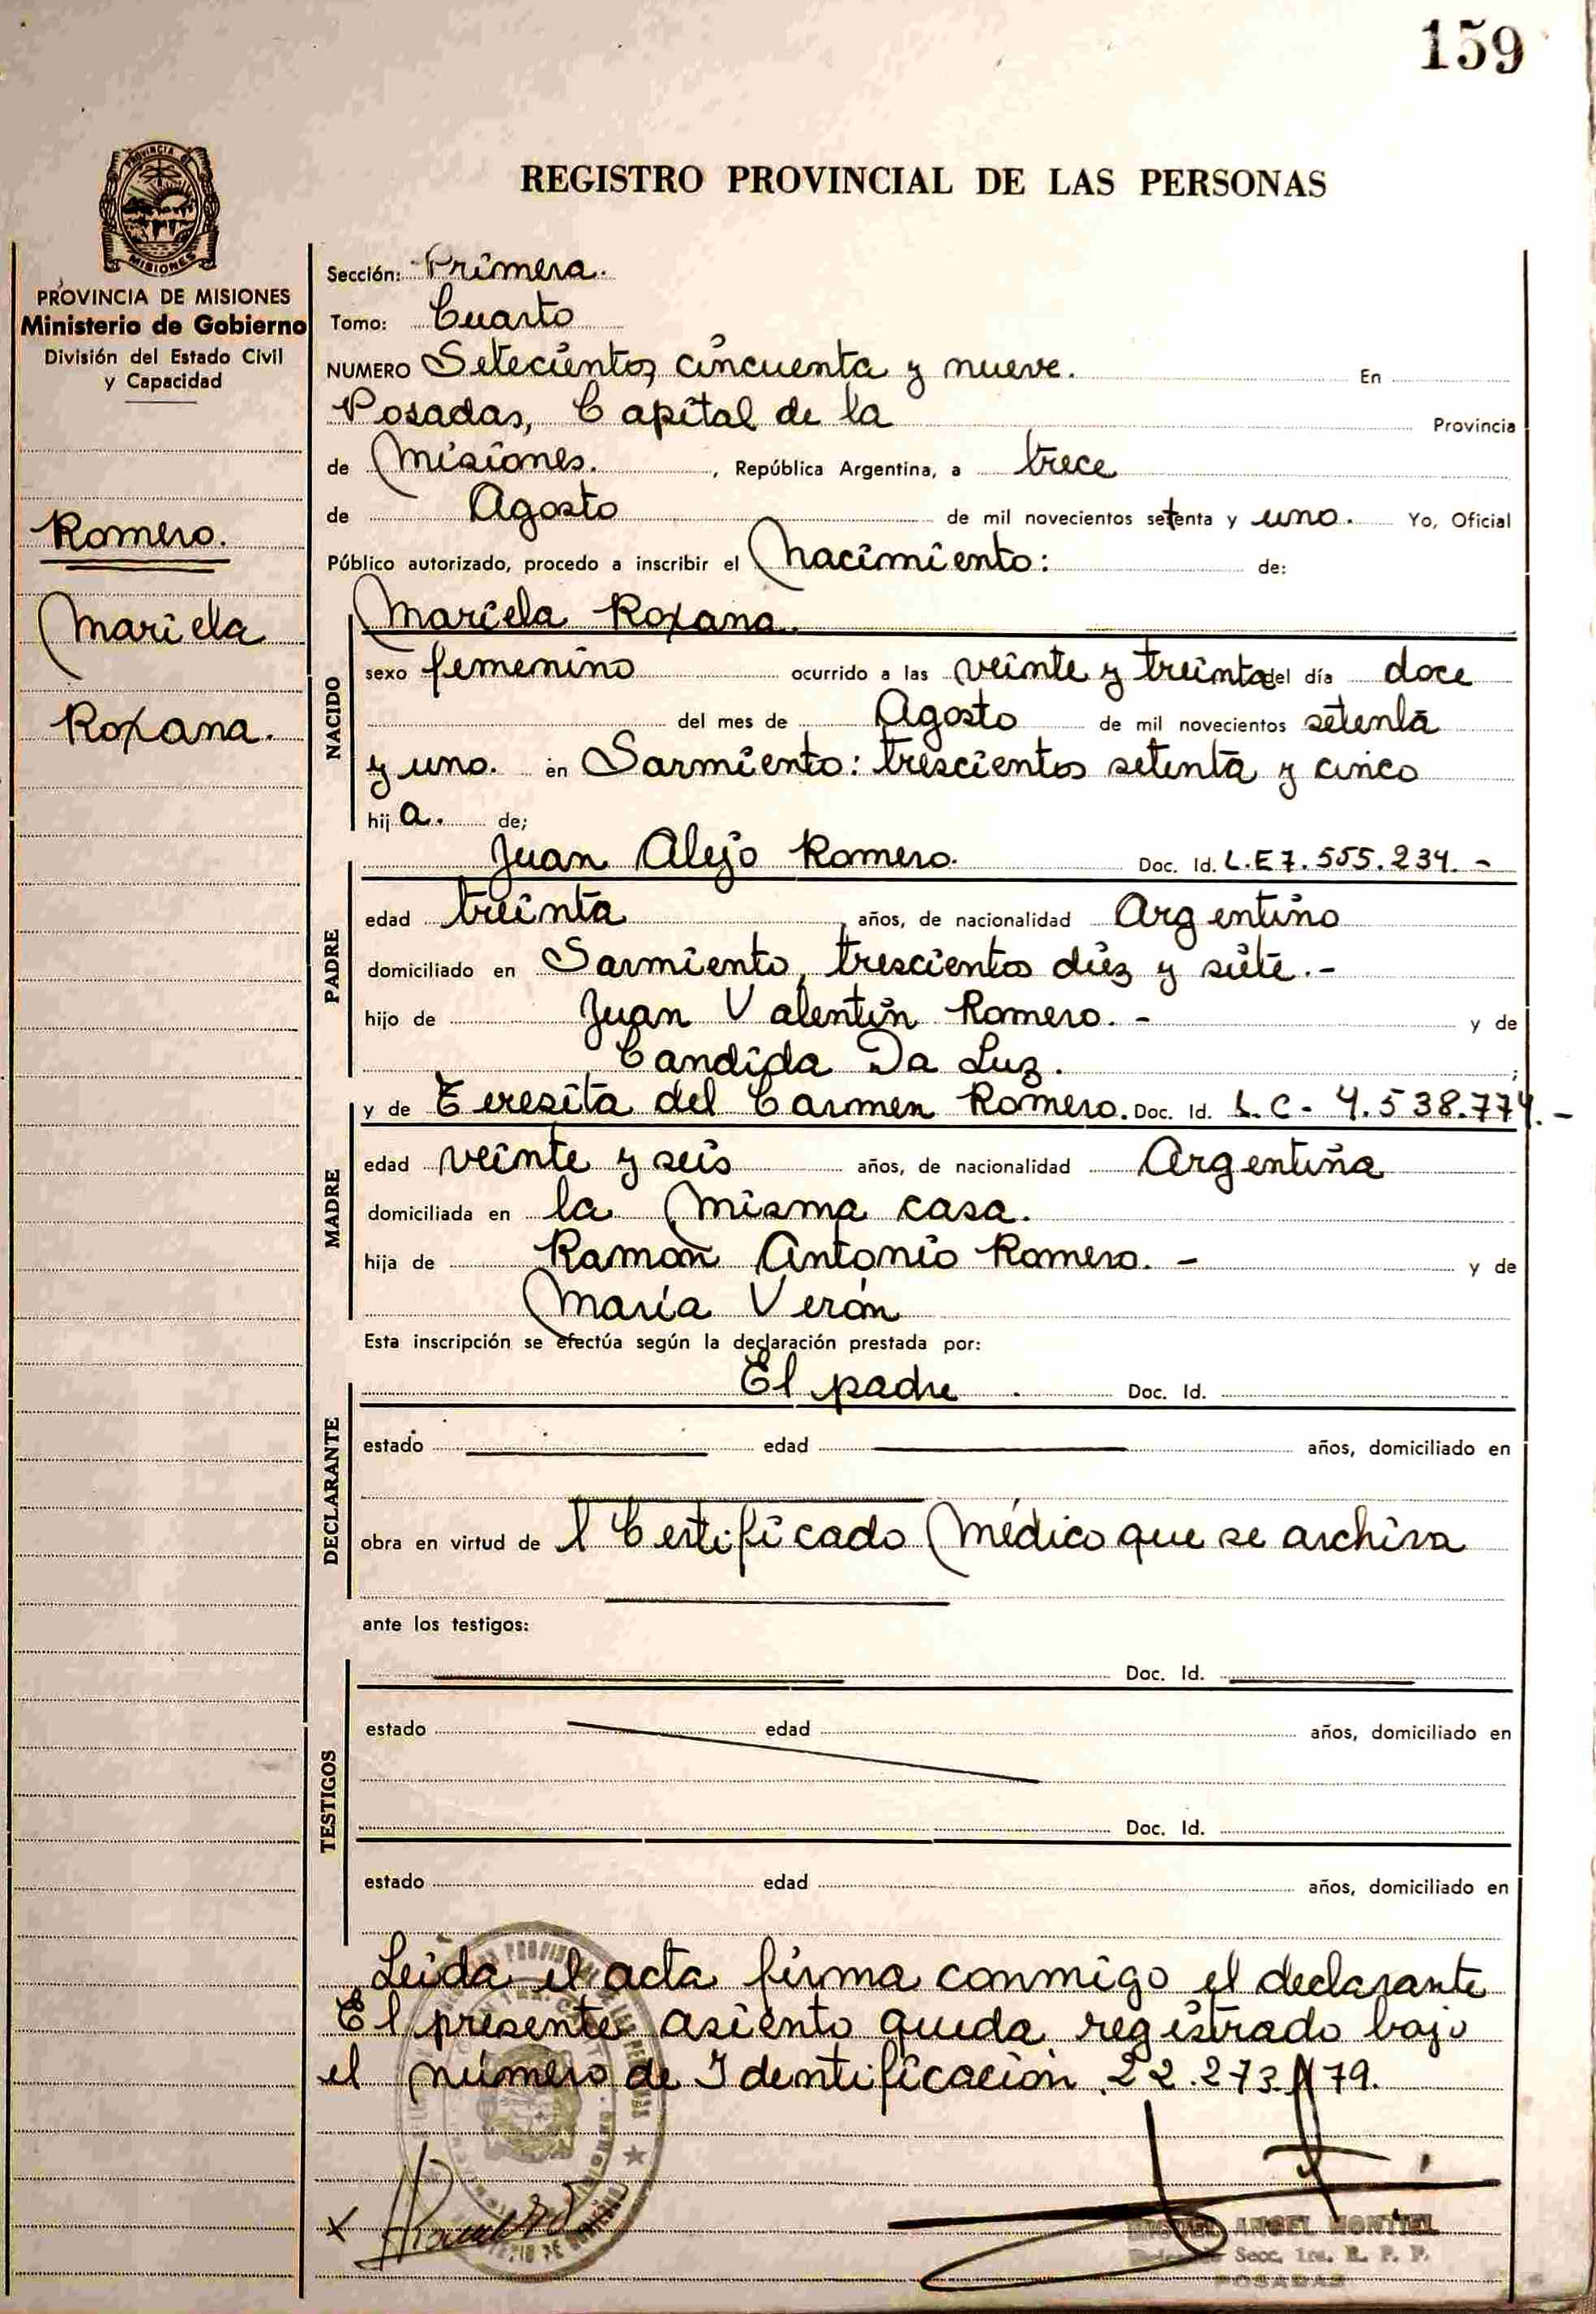 159
REGISTRO PROVINCIAL DE LAS PERSONAS
PROVINCIA DE MISIONES
Ministerio de Gobierno
División del Estado Civil
y Capacidad
Romero.
Mariela
Roxana.
Sección: Primera.
Tomo: Cuarto
NUMERO Setecientos cincuenta y nueve. En
Posadas, Capital de la Provincia
de Misiones. , República Argentina, a trece
de Agosto de mil novecientos setenta y uno. Yo, Oficial
Público autorizado, procedo a inscribir el Nacimiento: de:
NACIDO
Mariela Roxana.
sexo femenino ocurrido a las veinte y treinta del día doce
del mes de Agosto de mil novecientos setenta
y uno. en Sarmiento: trescientos setenta y cinco
hij a. de;
PADRE
Juan Alejo Romero. Doc. Id. L.E 7.555.234.-
edad treinta , años, de nacionalidad Argentino
domiciliado en Sarmiento, trescientos diez y siete.-
hijo de Juan Valentín Romero.- y de
Candida Da Luz. ;
MADRE
y de Teresita del Carmen Romero. Doc. Id. L.C- 4.538.774.-
edad veinte y seis años, de nacionalidad Argentina
domiciliada en la misma casa.
hija de Ramón Antonio Romero.- y de
María Verón
Esta inscripción se efectúa según la declaración prestada por:
DECLARANTE
El padre . Doc. Id.
estado edad años, domiciliado en
obra en virtud de l Certificado Médico que se archiva
ante los testigos:
TESTIGOS
Doc. Id.
estado edad años, domiciliado en
Doc. Id.
estado edad años, domiciliado en
Leida el acta firma conmigo el declarante
El presente asiento queda registrado bajo
el número de Identificación 22.273. 79.
x
MIGUEL ANGEL MONTIEL
Secc. 1ra. R. P. P.
POSADAS